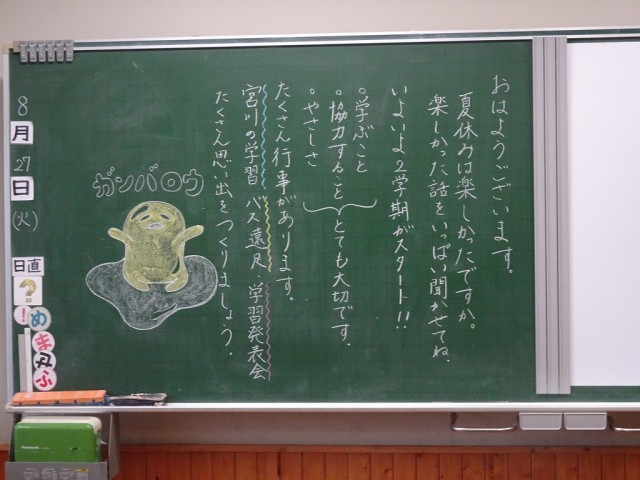 おはようございます。
夏休みは楽しかったですか。
楽しかった話をいっぱい聞かせてね。
いよいよ2学期がスタート!!
○学ぶこと
○協力すること
○やさしさ
とても大切です。
たくさん行事があります。
宮川の学習 バス遠足・学習発表会
たくさん思い出をつくりましょう。
ガンバロウ
8
月
27
日
(火)
日直
め
!
ま
ふ
Panasonic